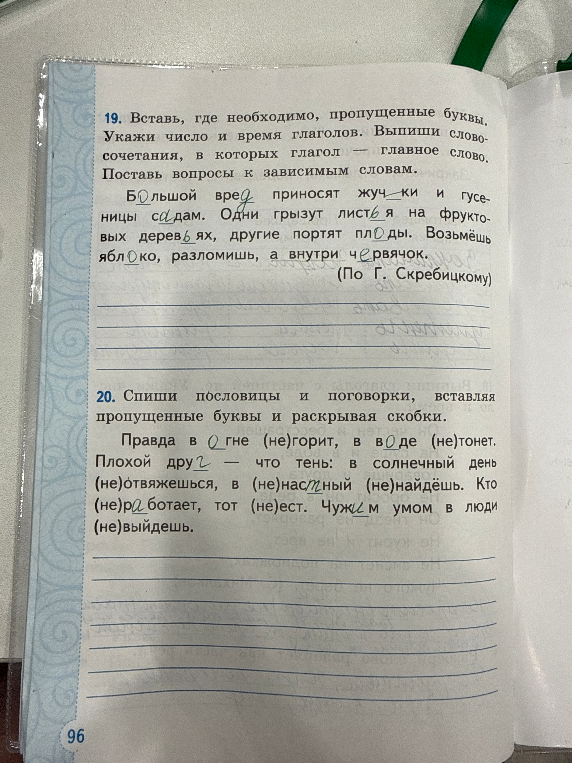 19. Вставь, где необходимо, пропущенные буквы.
Укажи число и время глаголов. Выпиши слово-
сочетания, в которых глагол — главное слово.
Поставь вопросы к зависимым словам.
Большой вред приносят жуч_ки и гусе-
ницы садам. Одни грызут листья на фрукто-
вых деревьях, другие портят плоды. Возьмёшь
яблоко, разломишь, а внутри червячок.
(По Г. Скребицкому)
20. Спиши пословицы и поговорки, вставляя
пропущенные буквы и раскрывая скобки.
Правда в огне (не)горит, в воде (не)тонет.
Плохой друг — что тень: в солнечный день
(не)отвяжешься, в (не)настный (не)найдёшь. Кто
(не)работает, тот (не)ест. Чужим умом в люди
(не)выйдешь.
96